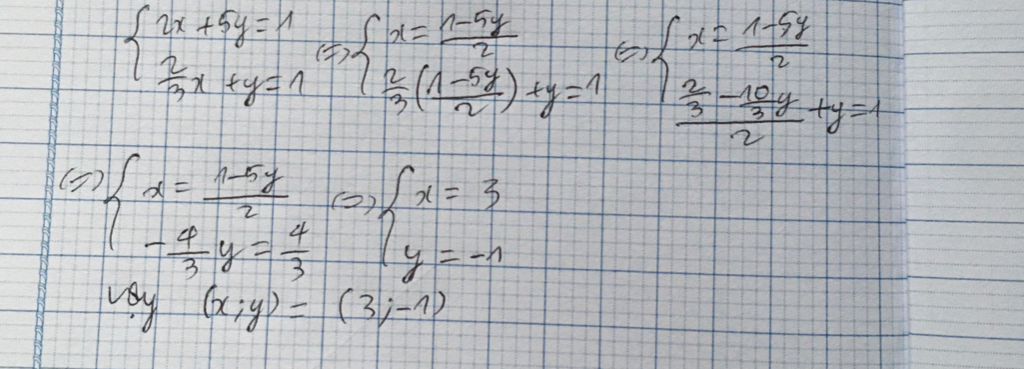 { 2x + 5y = 1 ; 2/3 x + y = 1 (=) { x = (1-5y)/2 ; 2/3 ( (1-5y)/2 ) + y = 1 (=) { x = (1-5y)/2 ; (2/3 - 10/3 y)/2 + y = 1
(=) { x = (1-5y)/2 ; -4/3 y = 4/3 (=) { x = 3 ; y = -1
Vậy (x;y) = (3;-1)